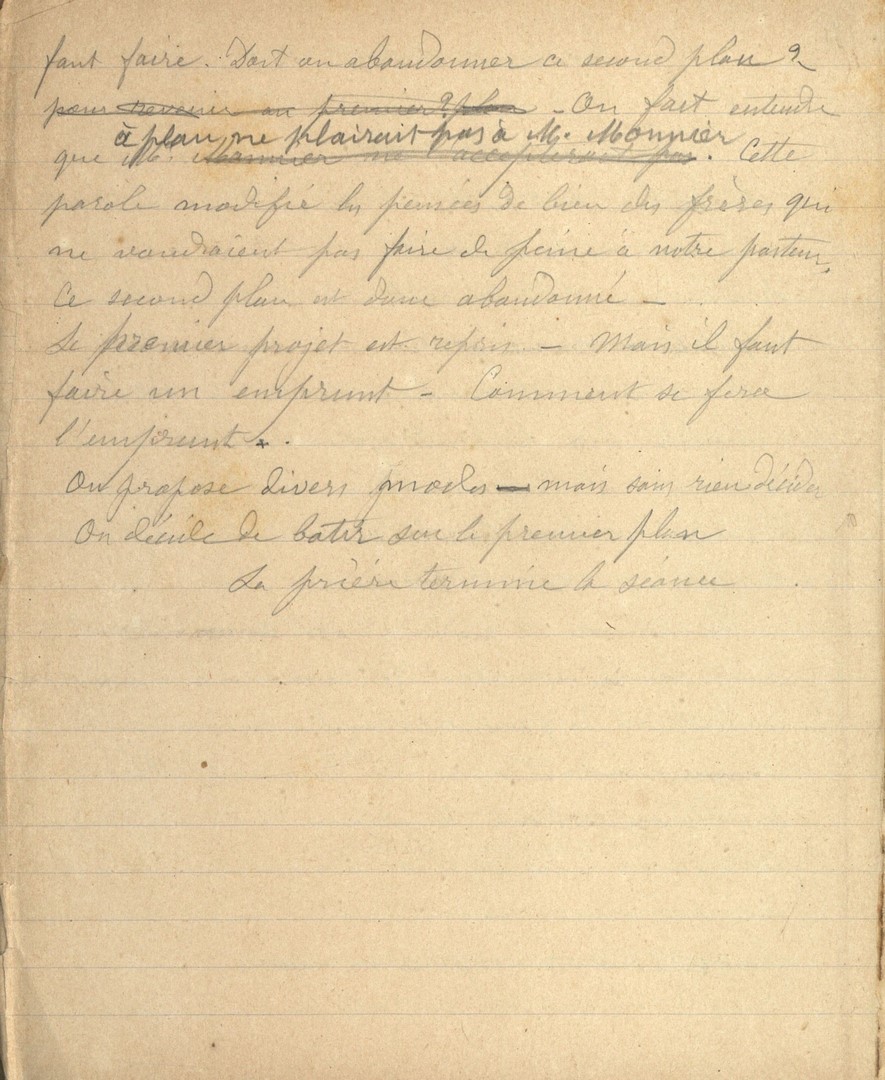 faut faire. Doit on abandonner ce second plan ?
pour revenir au premier? plan - On fait entendre
à plan ne plairait pas à M. Monnier
que M. Monnier ne l'accepterait pas. Cette
parole modifie les pensées de bien des frères qui
ne voudraient pas faire de peine à notre pasteur.
Ce second plan est donc abandonné -
Le premier projet est repris - Mais il faut
faire un emprunt - Comment se fera
l'emprunt.
On propose divers modes - mais sans rien décider
On décide de bâtir sur le premier plan
La prière termine la séance